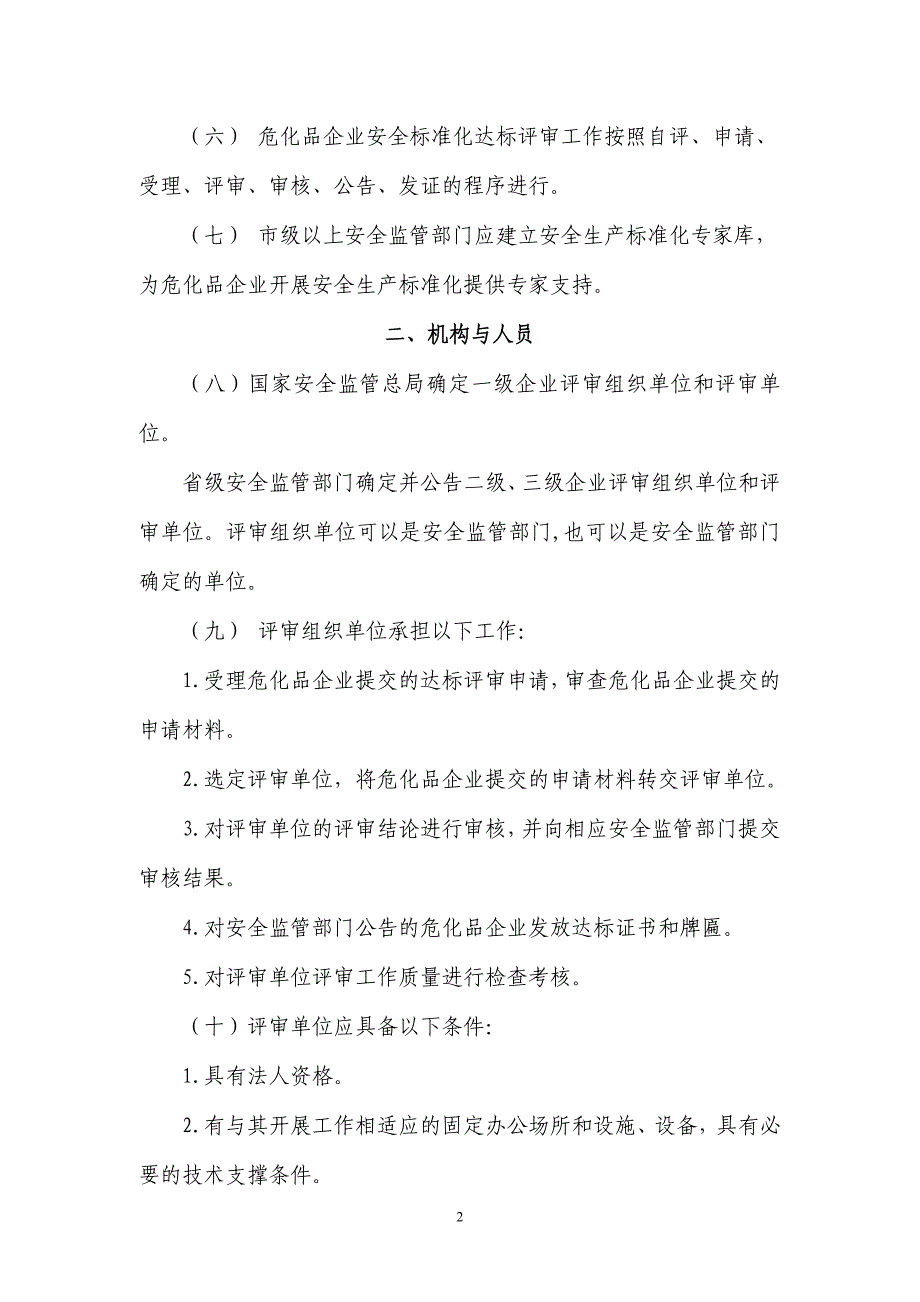 （六） 危化品企业安全标准化达标评审工作按照自评、申请、
受理、评审、审核、公告、发证的程序进行。
（七） 市级以上安全监管部门应建立安全生产标准化专家库，
为危化品企业开展安全生产标准化提供专家支持。
二、机构与人员
（八）国家安全监管总局确定一级企业评审组织单位和评审单
位。
省级安全监管部门确定并公告二级、三级企业评审组织单位和评
审单位。评审组织单位可以是安全监管部门,也可以是安全监管部门
确定的单位。
（九） 评审组织单位承担以下工作：
1.受理危化品企业提交的达标评审申请，审查危化品企业提交的
申请材料。
2.选定评审单位，将危化品企业提交的申请材料转交评审单位。
3.对评审单位的评审结论进行审核，并向相应安全监管部门提交
审核结果。
4.对安全监管部门公告的危化品企业发放达标证书和牌匾。
5.对评审单位评审工作质量进行检查考核。
（十）评审单位应具备以下条件：
1.具有法人资格。
2.有与其开展工作相适应的固定办公场所和设施、设备，具有必
要的技术支撑条件。
2